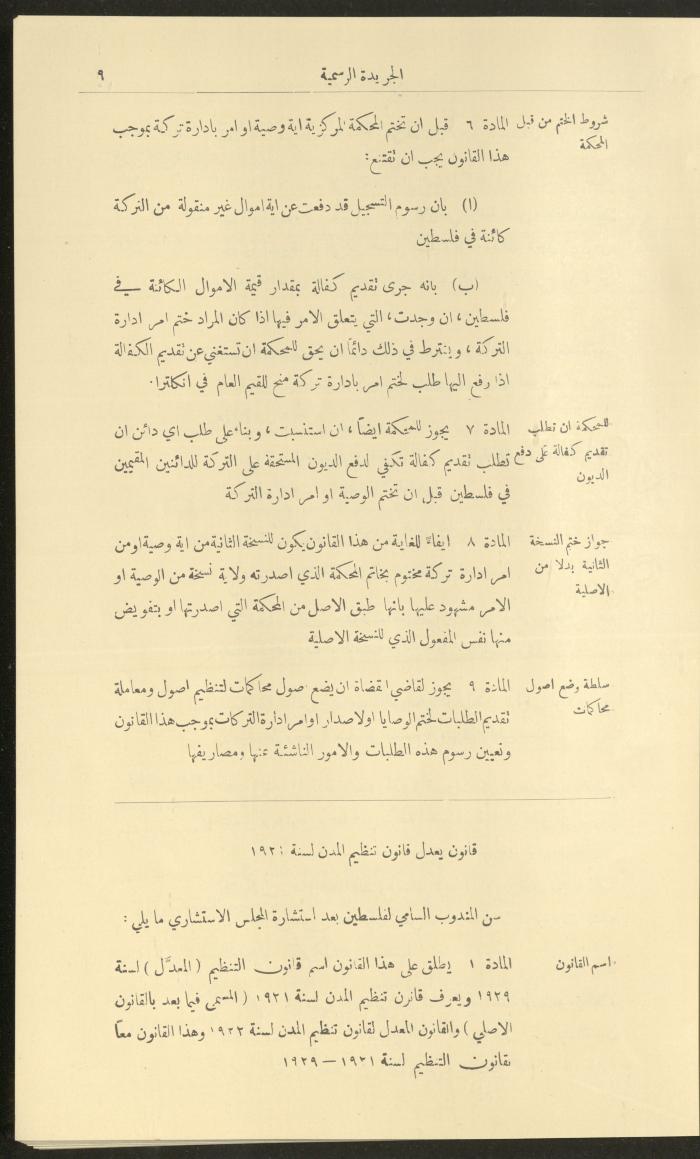 الجريدة الرسمية ٩
شروط الختم من قبل المحكمة
المادة ٦ قبل ان تختم المحكمة المركزية اية وصية او امر بادارة تركة بموجب
هذا القانون يجب ان تقتنع:
(ا) بان رسوم التسجيل قد دفعت عن اية اموال غير منقولة من التركة
كائنة في فلسطين
(ب) بانه جرى تقديم كفالة بمقدار قيمة الاموال الكائنة في
فلسطين، ان وجدت، التي يتعلق الامر فيها اذا كان المراد ختم امر ادارة
التركة، ويشترط في ذلك دائماً ان يحق للمحكمة ان تستغني عن تقديم الكفالة
اذا رفع اليها طلب لختم امر بادارة تركة منح للقيم العام في انكلترا.
للمحكمة ان تطلب
تقديم كفالة على دفع
الديون
المادة ٧ يجوز للمحكمة ايضاً، ان استنسبت، وبناء على طلب اي دائن ان
تطلب تقديم كفالة تكفي لدفع الديون المستحقة على التركة للدائنين المقيمين
في فلسطين قبل ان تختم الوصية او امر ادارة التركة
جواز ختم النسخة
الثانية بدلا من
الاصلية
المادة ٨ ايفاءً للغاية من هذا القانون يكون للنسخة الثانية من اية وصية او من
امر ادارة تركة مختوم بخاتم المحكمة الذي اصدرته ولاية نسخة من الوصية او
الامر مشهود عليها بانها طبق الاصل من المحكمة التي اصدرتها او بتفويض
منها نفس المفعول الذي للنسخة الاصلية
سلطة وضع اصول
محاكمات
المادة ٩ يجوز لقاضي القضاة ان يضع اصول محاكمات لتنظيم اصول ومعاملة
تقديم الطلبات لختم الوصايا او لاصدار اوامر ادارة التركات بموجب هذا القانون
وتعيين رسوم هذه الطلبات والامور الناشئة عنها ومصاريفها
قانون يعدل قانون تنظيم المدن لسنة ١٩٢١
سن المندوب السامي لفلسطين بعد استشارة المجلس الاستشاري ما يلي:
اسم القانون
المادة ١ يطلق على هذا القانون اسم قانون التنظيم (المعدَّل) لسنة
١٩٢٩ ويعرف قانون تنظيم المدن لسنة ١٩٢١ (المسمى فيما بعد بالقانون
الاصلي) والقانون المعدل لقانون تنظيم المدن لسنة ١٩٢٢ وهذا القانون معاً
بقانون التنظيم لسنة ١٩٢١ – ١٩٢٩